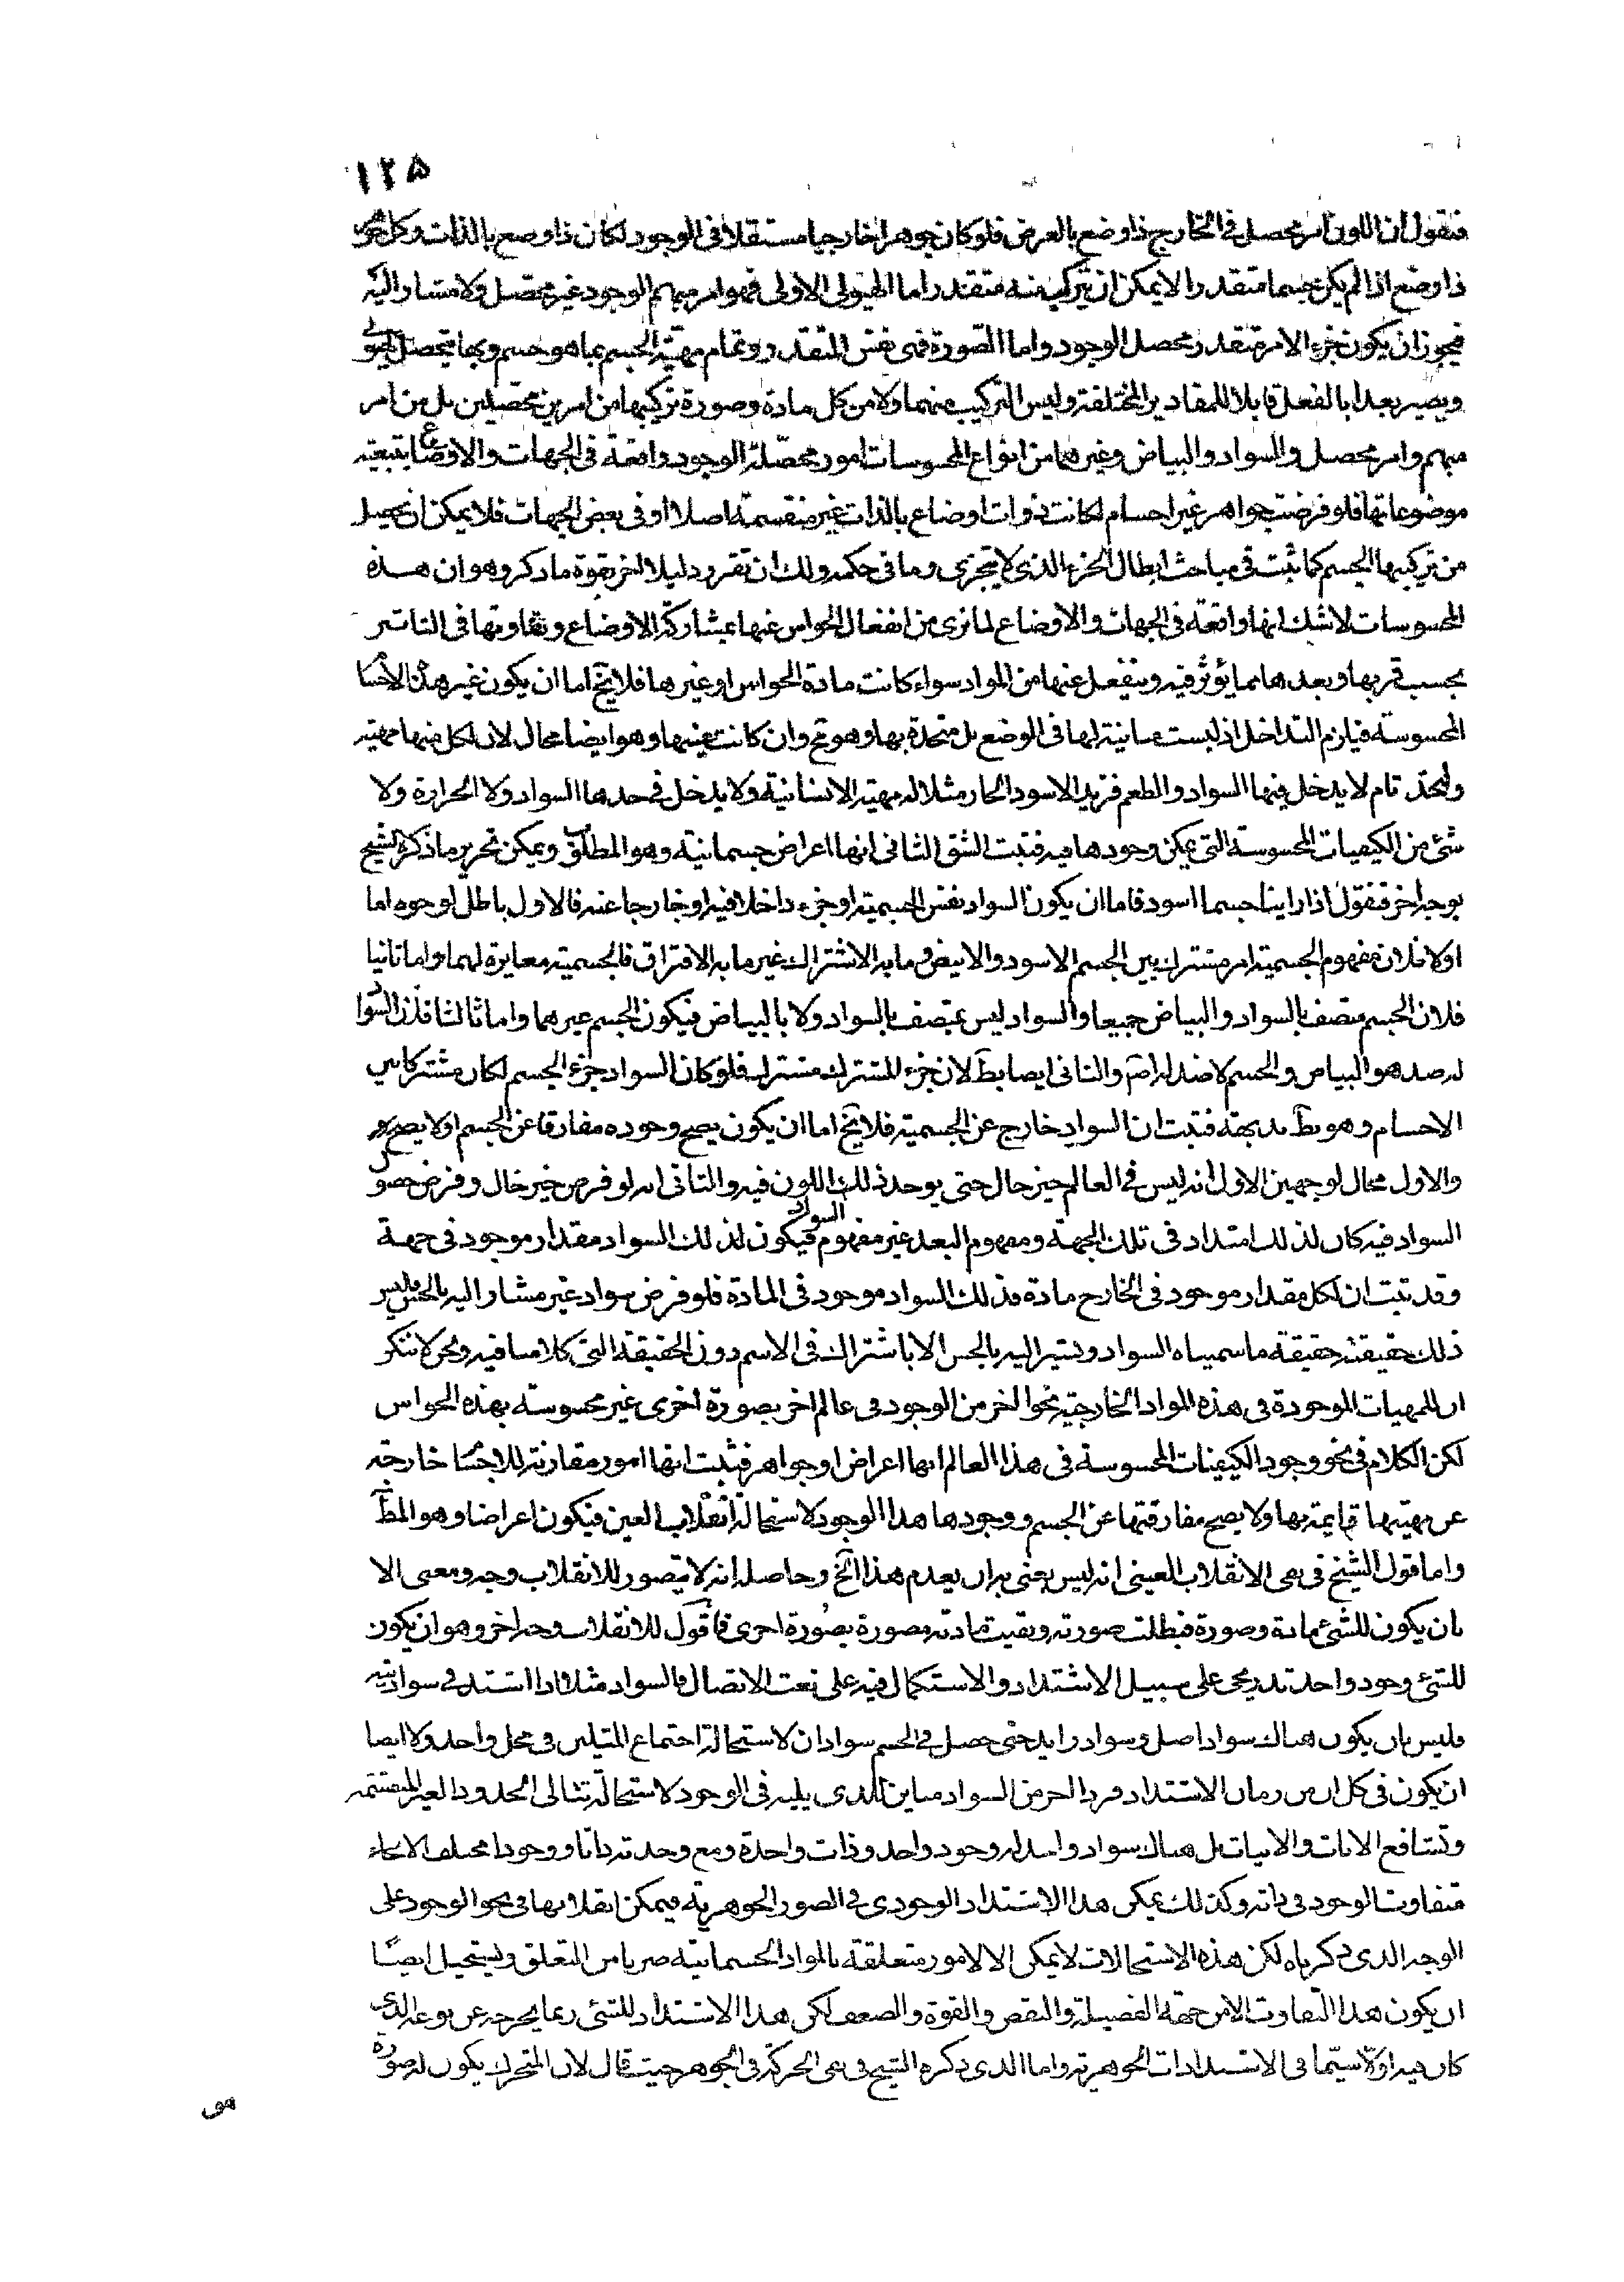 ١٢٥
فنقول ان اللون امر محصل فى الخارج ذا وضع بالعرض فلو كان جوهرا خارجيا مستقلا فى الوجود لكان ذا وضع بالذات وكل جوهر
ذا وضع اذا لم يكن جسما متقدرا لا يمكن ان يتركب منه متقدر اما الهيولى الاولى فهو امر مبهم الوجود غير محصل ولا مشار اليه
فيجوز ان يكون جزء الامر متقدر محصل الوجود واما الصورة فهى نفس المتقدر وتمام مهيته الجسم بما هو جسم وبها يتحصل الهيولى
ويصير بعدا بالفعل قابلا للمقادير المختلفة وليس التركيب منهما ولا من كل مادة وصورة تركيبا من امرين محصلين بل من امر
مبهم وامر محصل والسواد والبياض وغيرهما من انواع المحسوسات امور محصلة الوجود واقعة فى الجهات والاوضاع بتبعيته
موضوعاتها فلو فرضت جواهر غير اجسام لكانت ذوات اوضاع بالذات غير منقسمة اصلا او فى بعض الجهات فلا يمكن ان يحصل
من تركيبها الجسم كما ثبت فى مباحث ابطال الجزء الذى لا يتجزى وما فى حكمه ولك ان تقرر دليلا اخر بقوة ما ذكر وهو ان هذه
المحسوسات لا شك انها واقعة فى الجهات والاوضاع لما نرى من انفعال الحواس عنها بمشاركة الاوضاع وتفاوتها فى التاثير
بحسب قربها وبعدها مما يؤثر فيه وينفعل عنها من المواد سواء كانت مادة الحواس او غيرها فلا يخ اما ان يكون غير هذه الاجسا
المحسوسة فيلزم التداخل اذ ليست مباينة لها فى الوضع بل متحدة بها وهو مح وان كانت عينها وهو ايضا محال لان لكل منها مهية
ولحد تام لا يدخل فيها السواد والطعم فزيد الاسود الحار مثلا له مهية الانسانية ولا يدخل فى حدها السواد ولا الحرارة ولا
شئ من الكيفيات المحسوسة التى يمكن وجودها فيه فثبت الشق الثانى انها اعراض جسمانية وهو المطلوب ويمكن تحرير ما ذكره الشيخ
بوجه اخر فنقول اذا راينا جسما اسود فاما ان يكون السواد نفس الجسمية او جزء داخلا فيه او خارجا عنه فالاول باطل لوجوه اما
اولا فلان مفهوم الجسمية امر مشترك بين الجسم الاسود والابيض وما به الاشتراك غير ما به الافتراق فالجسمية مغايرة لهما واما ثانيا
فلان الجسم متصف بالسواد والبياض جميعا والسواد ليس بمتصف بالسواد ولا بالبياض فيكون الجسم غيرهما واما ثالثا فلان السواد
له ضد هو البياض والجسم لا ضد له والثانى ايضا بط لان جزء المشترك مشترك فلو كان السواد جزء الجسم لكان مشتركا بين
الاجسام وهو بط بديهة فثبت ان السواد خارج عن الجسمية فلا يخ اما ان يكون يصح وجوده مفارقا عن الجسم او لا يصح
والاول محال لوجهين الاول انه ليس فى العالم حيز خال حتى يوجد ذلك اللون فيه والثانى انه لو فرض حيز خال وفرض حصول
السواد فيه كان لذلك امتداد فى تلك الجهة ومفهوم البعد غير مفهوم السواد فيكون لذلك السواد مقدار موجود فى جهة
وقد ثبت ان لكل مقدار موجود فى الخارج مادة فذلك السواد موجود فى المادة فلو فرض سواد غير مشار اليه بالحس فليس
ذلك حقيقته حقيقة ما سميناه السواد ونشير اليه بالحس الا باشتراك فى الاسم دون الحقيقة التى كلامنا فيه ونحن لا ننكر
ان للمهيات الموجودة فى هذه المواد الخارجية نحوا اخر من الوجود فى عالم اخر بصورة اخرى غير محسوسة بهذه الحواس
لكن الكلام فى نحو وجود الكيفيات المحسوسة فى هذا العالم انها اعراض او جواهر فثبت انها امور مقارنة للاجسا خارجة
عن مهيتها قايمة بها ولا يصح مفارقتها عن الجسم ووجودها هذا الوجود لاستحالة انقلاب العين فيكون اعراضا وهو المط
واما قول الشيخ فى نفى الانقلاب العينى انه ليس يعنى به ان يعدم هذا الخ وحاصله انه لا يتصور للانقلاب وجه ومعنى الا
بان يكون للشئ مادة وصورة فبطلت صورته وبقيت مادته مصورة بصورة اخرى فاقول للانقلاب وجه اخر وهو ان يكون
للشئ وجود واحد تدريجى على سبيل الاشتداد والاستكمال فيه على نعت الاتصال فالسواد مثلا اذا اشتد فى سواديته
فليس بان يكون هناك سواد اصل وسواد زايد حتى حصل فى الجسم سوادان لاستحالة اجتماع المثلين فى محل واحد ولا ايضا
ان يكون فى كل ان من زمان الاشتداد فردا اخر من السواد مباين للذى يليه فى الوجود لاستحالة تتالى الحدود الغير المنقسمة
وتشافع الانات والانيات بل هناك سواد واحد له وجود واحد وذات واحدة ومع وحدته ذاتا ووجودا مختلف الانحاء
متفاوت الوجود فى ذاته وكذلك يمكن هذا الاشتداد الوجودى فى الصور الجوهرية فيمكن انقلابها فى نحو الوجود على
الوجه الذى ذكرناه لكن هذه الاستحالات لا يمكن الا لامور متعلقة بالمواد الجسمانية ضربا من التعلق ويستحيل ايضا
ان يكون هذا التفاوت الا من جهة الفضيلة والنقص والقوة والضعف لكن هذا الاشتداد للشئ ربما يخرجه عن نوعه الذى
كان فيه اولا سيما فى الاشتدادات الجوهرية واما الذى ذكره الشيخ فى نفى الحركة فى الجوهر حيث قال لان المتحرك يكون له صورة